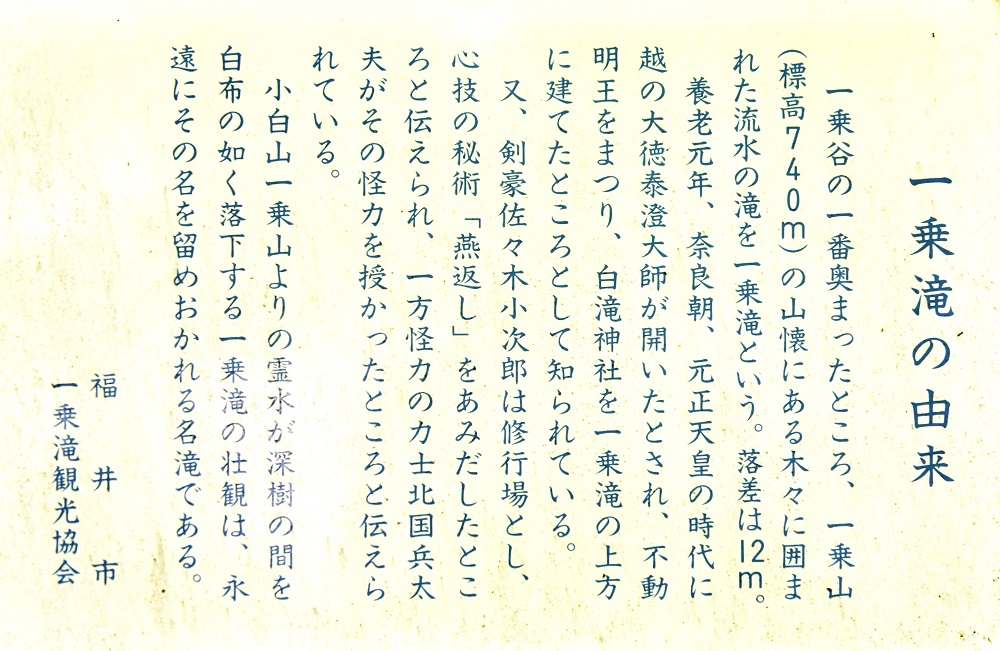 一乗滝の由来
一乗谷の一番奥まったところ、一乗山
(標高740m)の山懐にある木々に囲ま
れた流水の滝を一乗滝という。落差は12m。
養老元年、奈良朝、元正天皇の時代に
越の大徳泰澄大師が開いたとされ、不動
明王をまつり、白滝神社を一乗滝の上方
に建てたところとして知られている。
又、剣豪佐々木小次郎は修行場とし、
心技の秘術「燕返し」をあみだしたとこ
ろと伝えられ、一方怪力の力士北国兵太
夫がその怪力を授かったところと伝えら
れている。
小白山一乗山よりの霊水が深樹の間を
白布の如く落下する一乗滝の壮観は、永
遠にその名を留めおかれる名滝である。
福井市
一乗滝観光協会